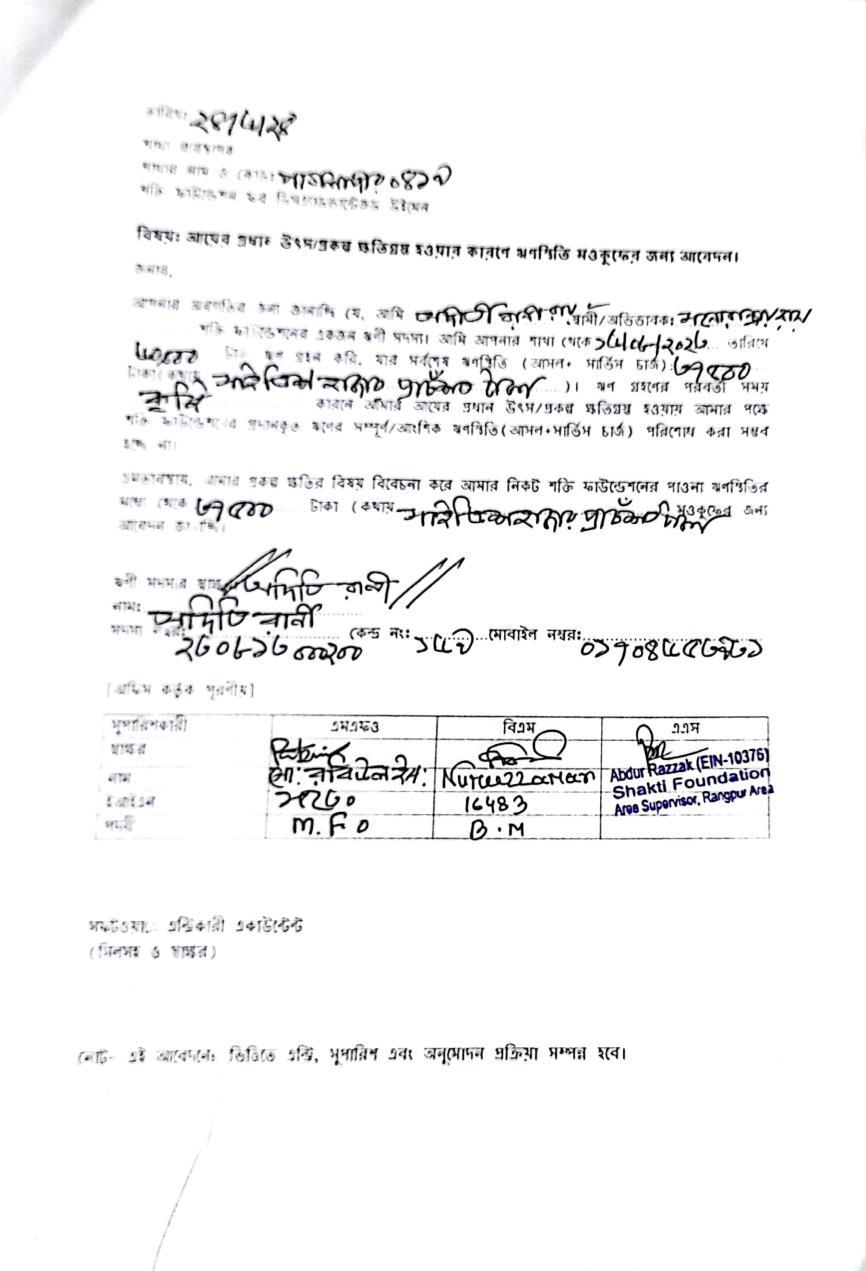 তারিখঃ
শাখা ব্যবস্থাপক
শাখার নাম ও কোডঃ
শক্তি ফাউন্ডেশন ফর ডিসএ্যাডভান্টেজড উইমেন
বিষয়ঃ আয়ের প্রধান উৎস/প্রকল্প ক্ষতিগ্রস্ত হওয়ার কারণে ঋণস্থিতি মওকুফের জন্য আবেদন।
জনাব,
আপনার অবগতির জন্য জানাচ্ছি যে, আমি অদিতি রানী রায় স্বামী/অভিভাবকঃ
শক্তি ফাউন্ডেশনের একজন ঋণী সদস্য। আমি আপনার শাখা থেকে তারিখে
টাকা ঋণ গ্রহন করি, যার সর্বশেষ ঋণস্থিতি (আসল+ সার্ভিস চার্জ) ৩৭৫০০
টাকা (কথায় সাইত্রিশ হাজার পাঁচশত টাকা )। ঋণ গ্রহণের পরবর্তী সময়
কৃষি কারনে আমার আয়ের প্রধান উৎস/প্রকল্প ক্ষতিগ্রস্ত হওয়ায় আমার পক্ষে
শক্তি ফাউন্ডেশনের প্রদানকৃত ঋণের সম্পূর্ণ/আংশিক ঋণস্থিতি(আসল+সার্ভিস চার্জ) পরিশোধ করা সম্ভব
হচ্ছে না।
এমতাবস্থায়, আমার প্রকল্প ক্ষতির বিষয় বিবেচনা করে আমার নিকট শক্তি ফাউন্ডেশনের পাওনা ঋণস্থিতির
মধ্য থেকে ৩৭৫০০ টাকা (কথায় সাইত্রিশ হাজার পাঁচশত টাকা মওকুফের জন্য
আবেদন জানাচ্ছি।
ঋণী সদস্যর স্বাক্ষর অদিতি রানী
নামঃ অদিতি রানী
সদস্য নম্বরঃ কেন্দ্র নং: মোবাইল নম্বরঃ
[অফিস কর্তৃক পূরণীয়]
সুপারিশকারী এমএফও বিএম এএস
স্বাক্ষর
নাম Nuruzzaman Abdur Razzak (EIN-10376)
Shakti Foundation
Area Supervisor, Rangpur Area
ইআইএন 16483
পদবী M.F O B.M
সফটওয়্যার এন্ট্রিকারী একাউন্টেন্ট
(সিলসহ ও স্বাক্ষর)
নোট- এই আবেদনের ভিত্তিতে এন্ট্রি, সুপারিশ এবং অনুমোদন প্রক্রিয়া সম্পন্ন হবে।